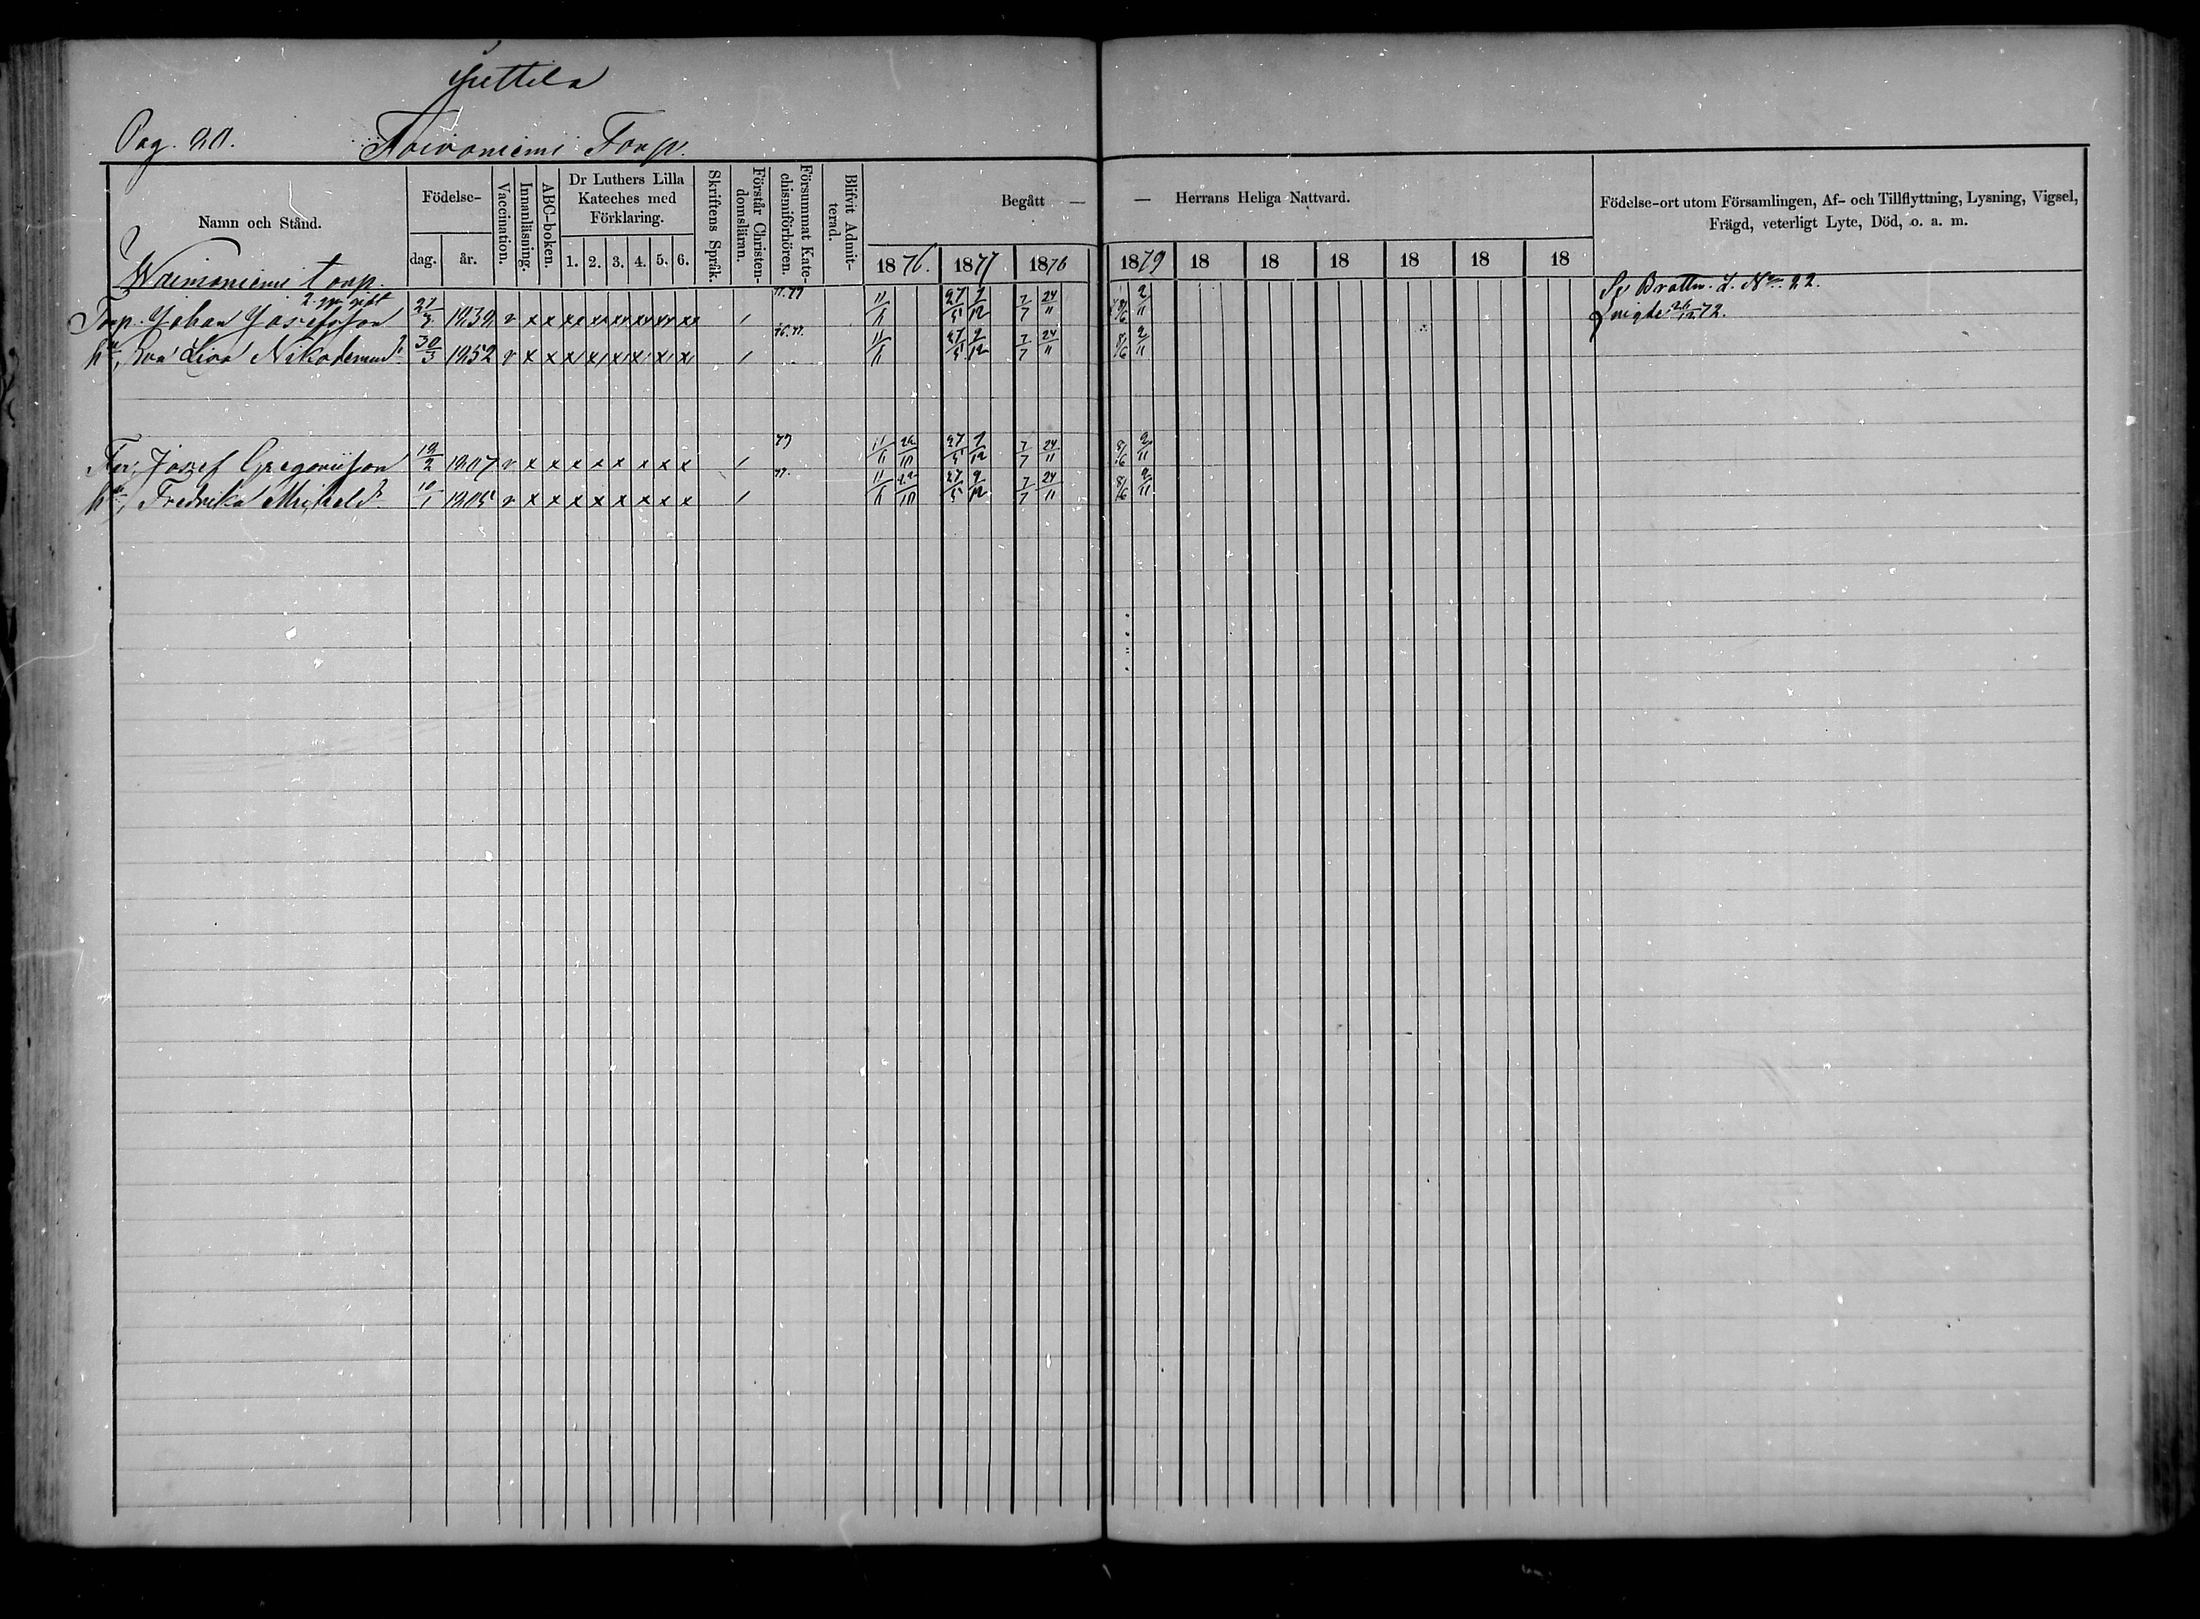 Pag. 80.
Toivoniemi Torp.
Namn och Stånd.
Födelse-
dag.
år.
Vaccination.
Innanläsning.
ABC-boken.
Dr Luthers Lilla
Kateches med
Förklaring.
1. 2. 3. 4. 5. 6.
Skriftens Språk.
Förstår Christen-
domsläran.
Försummat Kate-
chismiförhören.
Blifvit Admit-
terad.
Begått — — Herrans Heliga Nattvard.
1876. 1877 1878 1879 18 18 18 18 18 18
Födelse-ort utom Församlingen, Af- och Tillflyttning, Lysning, Vigsel,
Frägd, veterligt Lyte, Död, o. a. m.
Wainioniemi torp.
2. gr gift
Torp. Johan Josefsson 1839 v x x x x x x x x / 77.79 11/11 27/5 2/12 7/7 24/11 8/6 2/11
vigde 26/12 72.
h:u, Eva Lisa Nikodemusd:r 30/3 1852 v x x x x x x x x / 76.77. 11/11 27/5 2/12 7/7 24/11 8/6 2/11
Far, Josef Gregoriisson 19/2 1807 v x x x x x x x x / 77 11/11 22/10 27/5 2/12 7/7 24/11 8/6 2/11
h:u, Fredrika Michelsd:r 10/1 1805 v x x x x x x x x / 77. 11/11 22/10 27/5 2/12 7/7 24/11 8/6 2/11